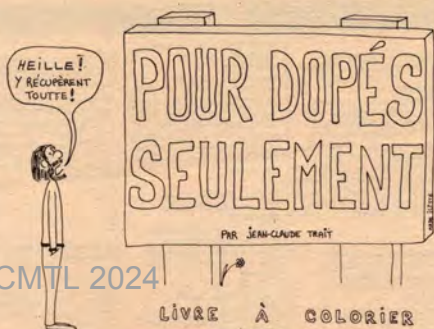 HEILLE!
Y RÉCUPÈRENT
TOUTTE!
POUR DOPÉS
SEULEMENT
PAR JEAN-CLAUDE TRAIT
CMTL 2024
LIVRE À COLORIER